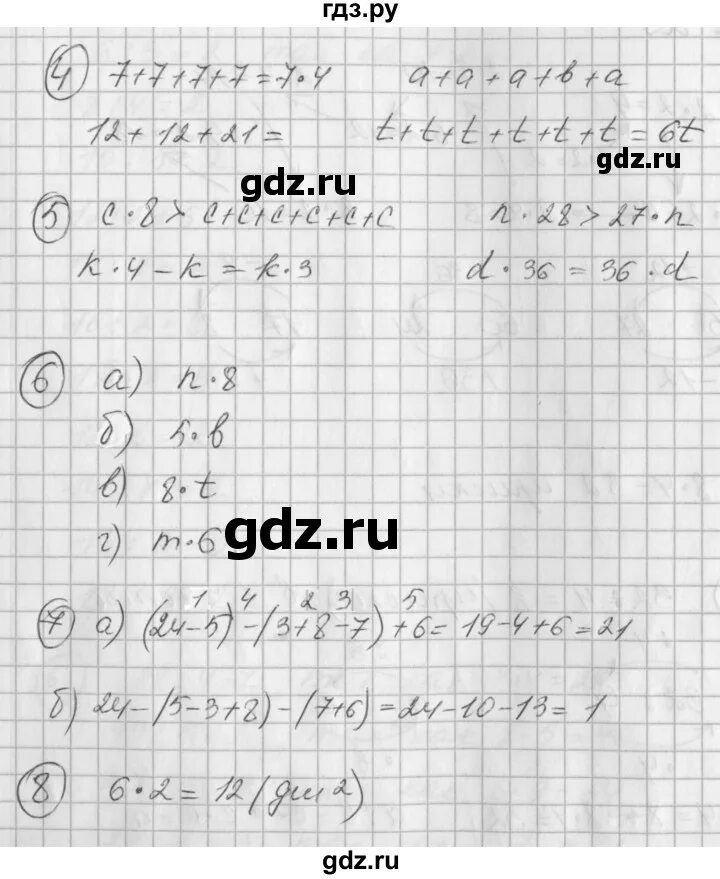 гдз.ру
4 7+7+7+7=7·4 a+a+a+b+a
12+12+21= t+t+t+t+t+t=6t
gdz.ru gdz.ru
5 c·8>c+c+c+c+c+c n·28>27·n
k·4-k=k·3 d·36=36·d
6 а) n·8
б) 5·b
в) 8·t
г) m·6
gdz.ru
1 4 2 3 5
7 а) (24-5)-(3+8-7)+6=19-4+6=21
б) 24-(5-3+8)-(7+6)=24-10-13=1
8 6·2=12(дм²)
gdz.ru